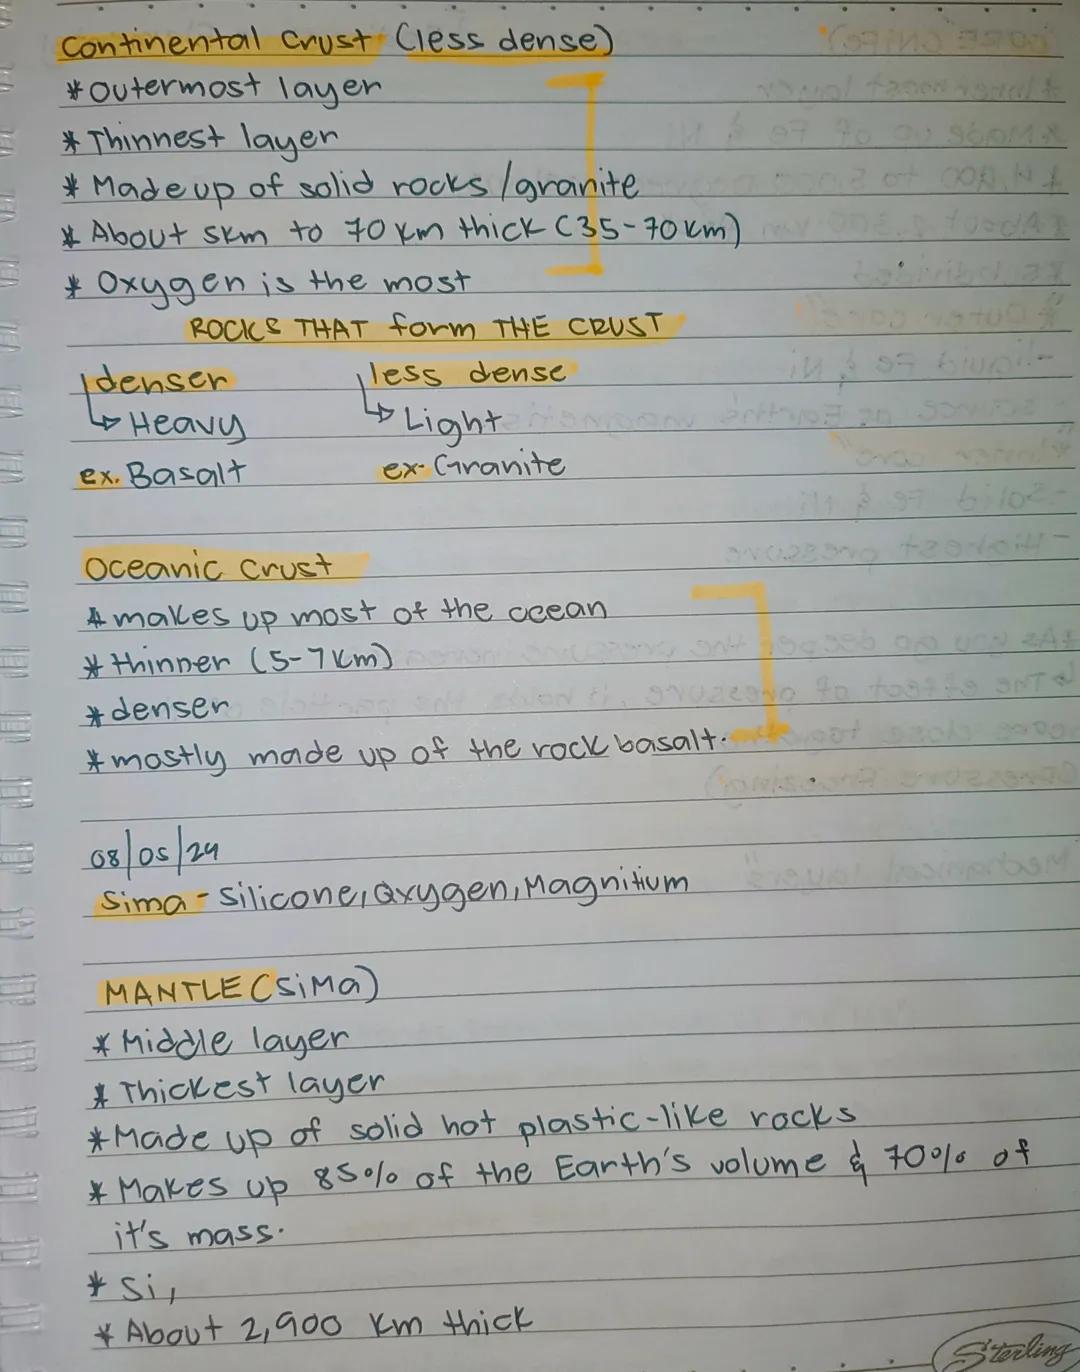 Continental Crust (less dense)
* Outermost layer
* Thinnest layer
* Made up of solid rocks /granite
* About 5km to 70 km thick (35-70km)
* Oxygen is the most
ROCKS THAT form THE CRUST
denser less dense
↳ Heavy ↳ Light
ex. Basalt ex- Granite
Oceanic Crust
* makes up most of the ocean
* thinner (5-7km)
* denser
* mostly made up of the rock basalt.
08/05/24
Sima - Silicone, Oxygen, Magnitium
MANTLE (SiMa)
* Middle layer
* Thickest layer
* Made up of solid hot plastic-like rocks
* Makes up 85% of the Earth's volume & 70% of
it's mass.
* Si,
* About 2,900 km thick
Sterling